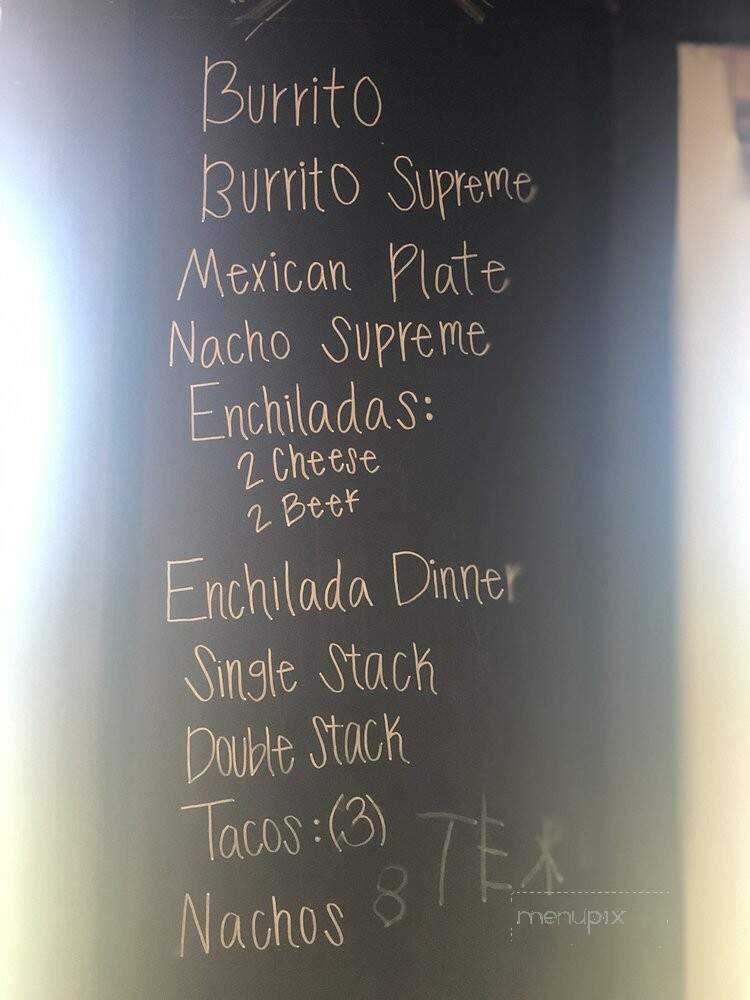 Burrito
Burrito Supreme
Mexican Plate
Nacho Supreme
Enchiladas:
2 Cheese
2 Beef
Enchilada Dinner
Single Stack
Double Stack
Tacos:(3)
8 TEX
Nachos
menupix